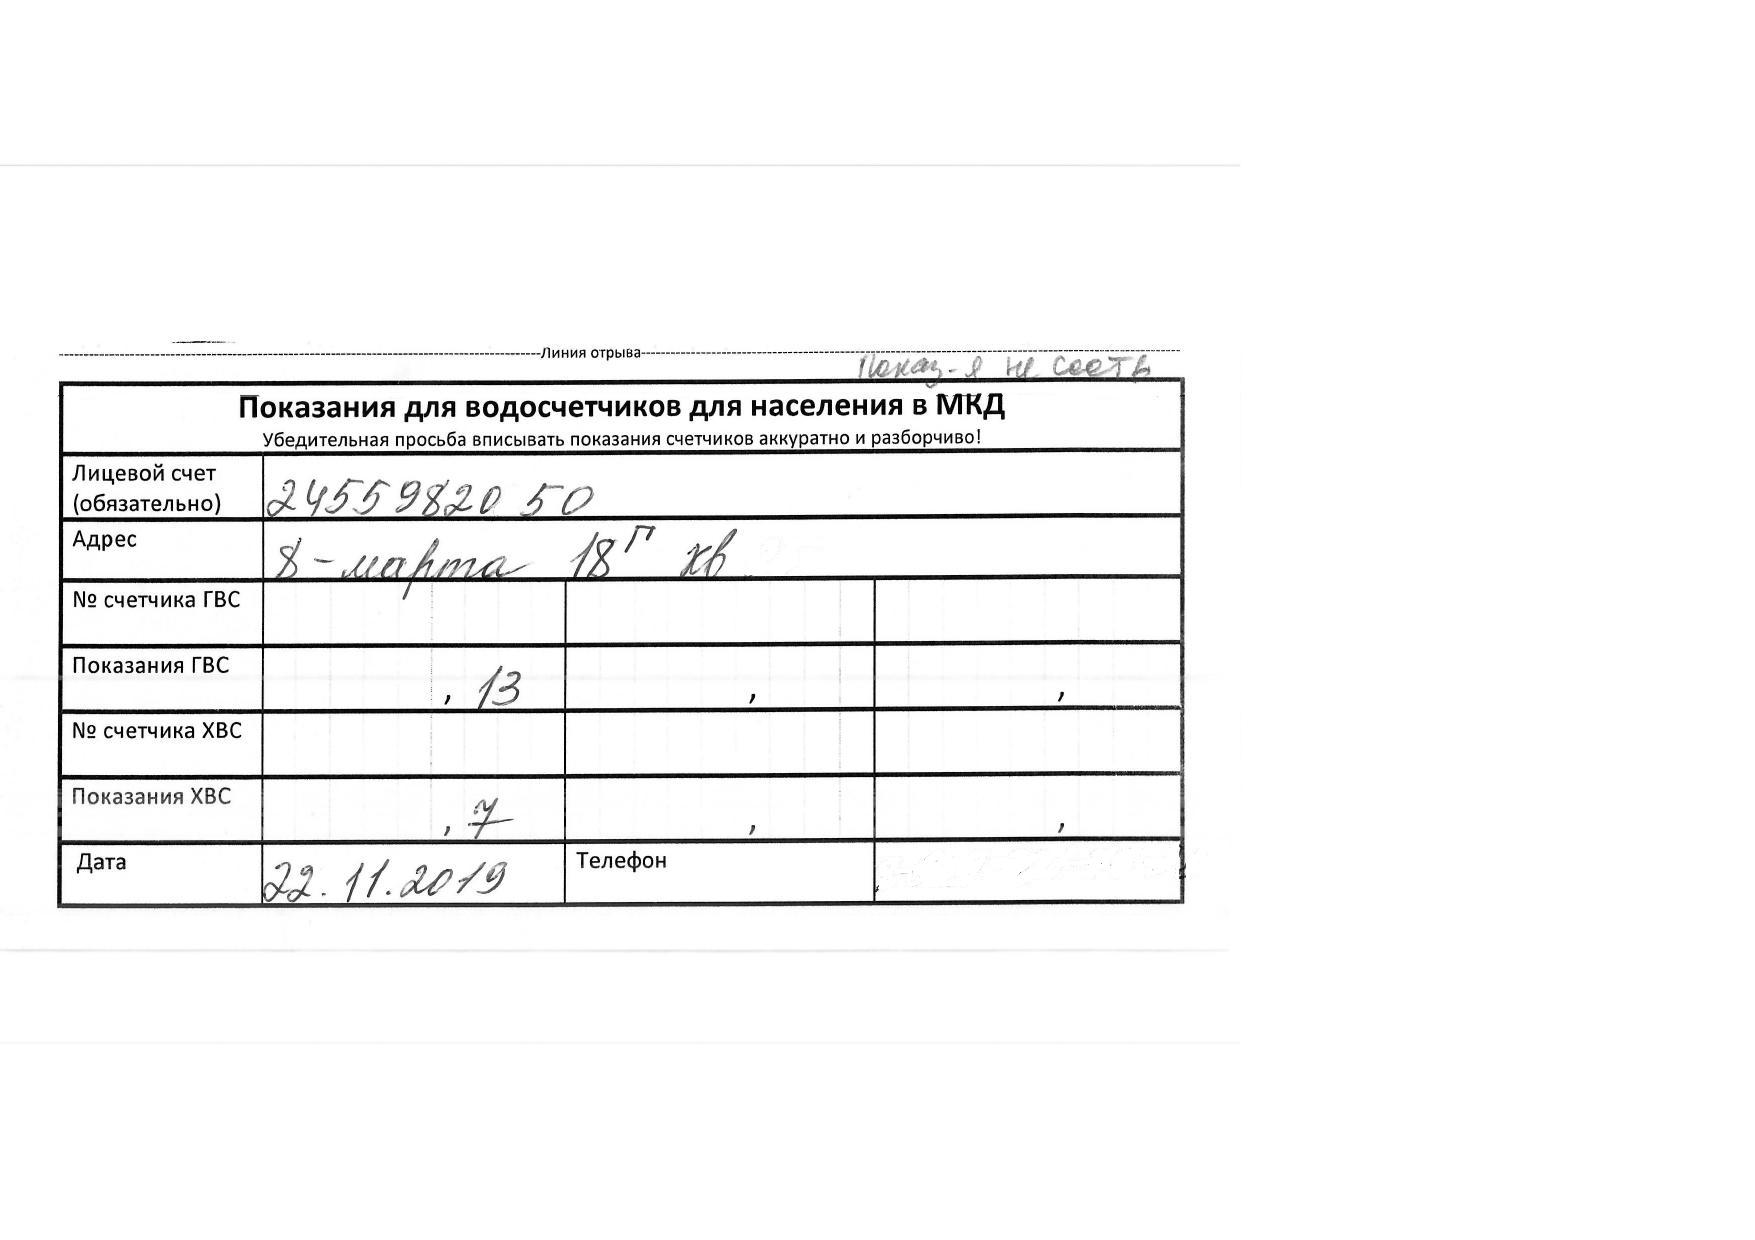 Линия отрыва
Показ-я не соотв
Показания для водосчетчиков для населения в МКД
Убедительная просьба вписывать показания счетчиков аккуратно и разборчиво!
Лицевой счет (обязательно) 2455982050
Адрес 8-марта 18Г кв
№ счетчика ГВС
Показания ГВС , 13 , ,
№ счетчика ХВС
Показания ХВС , 7 , ,
Дата 22.11.2019 Телефон